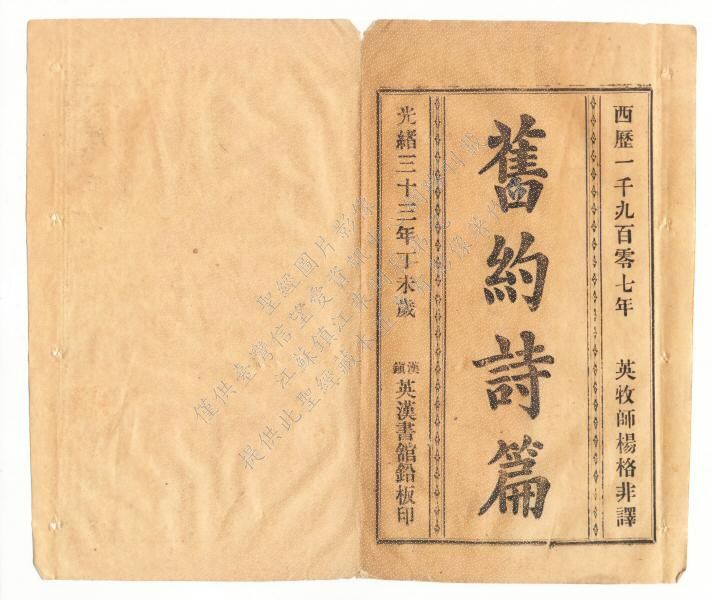 西歷一千九百零七年 英牧師楊格非譯
舊約詩篇
光緒三十三年丁未歲 漢鎮英漢書館鉛板印
聖經圖片影像
僅供臺灣信望愛資訊中心
江蘇鎮江
提供此聖經藏本